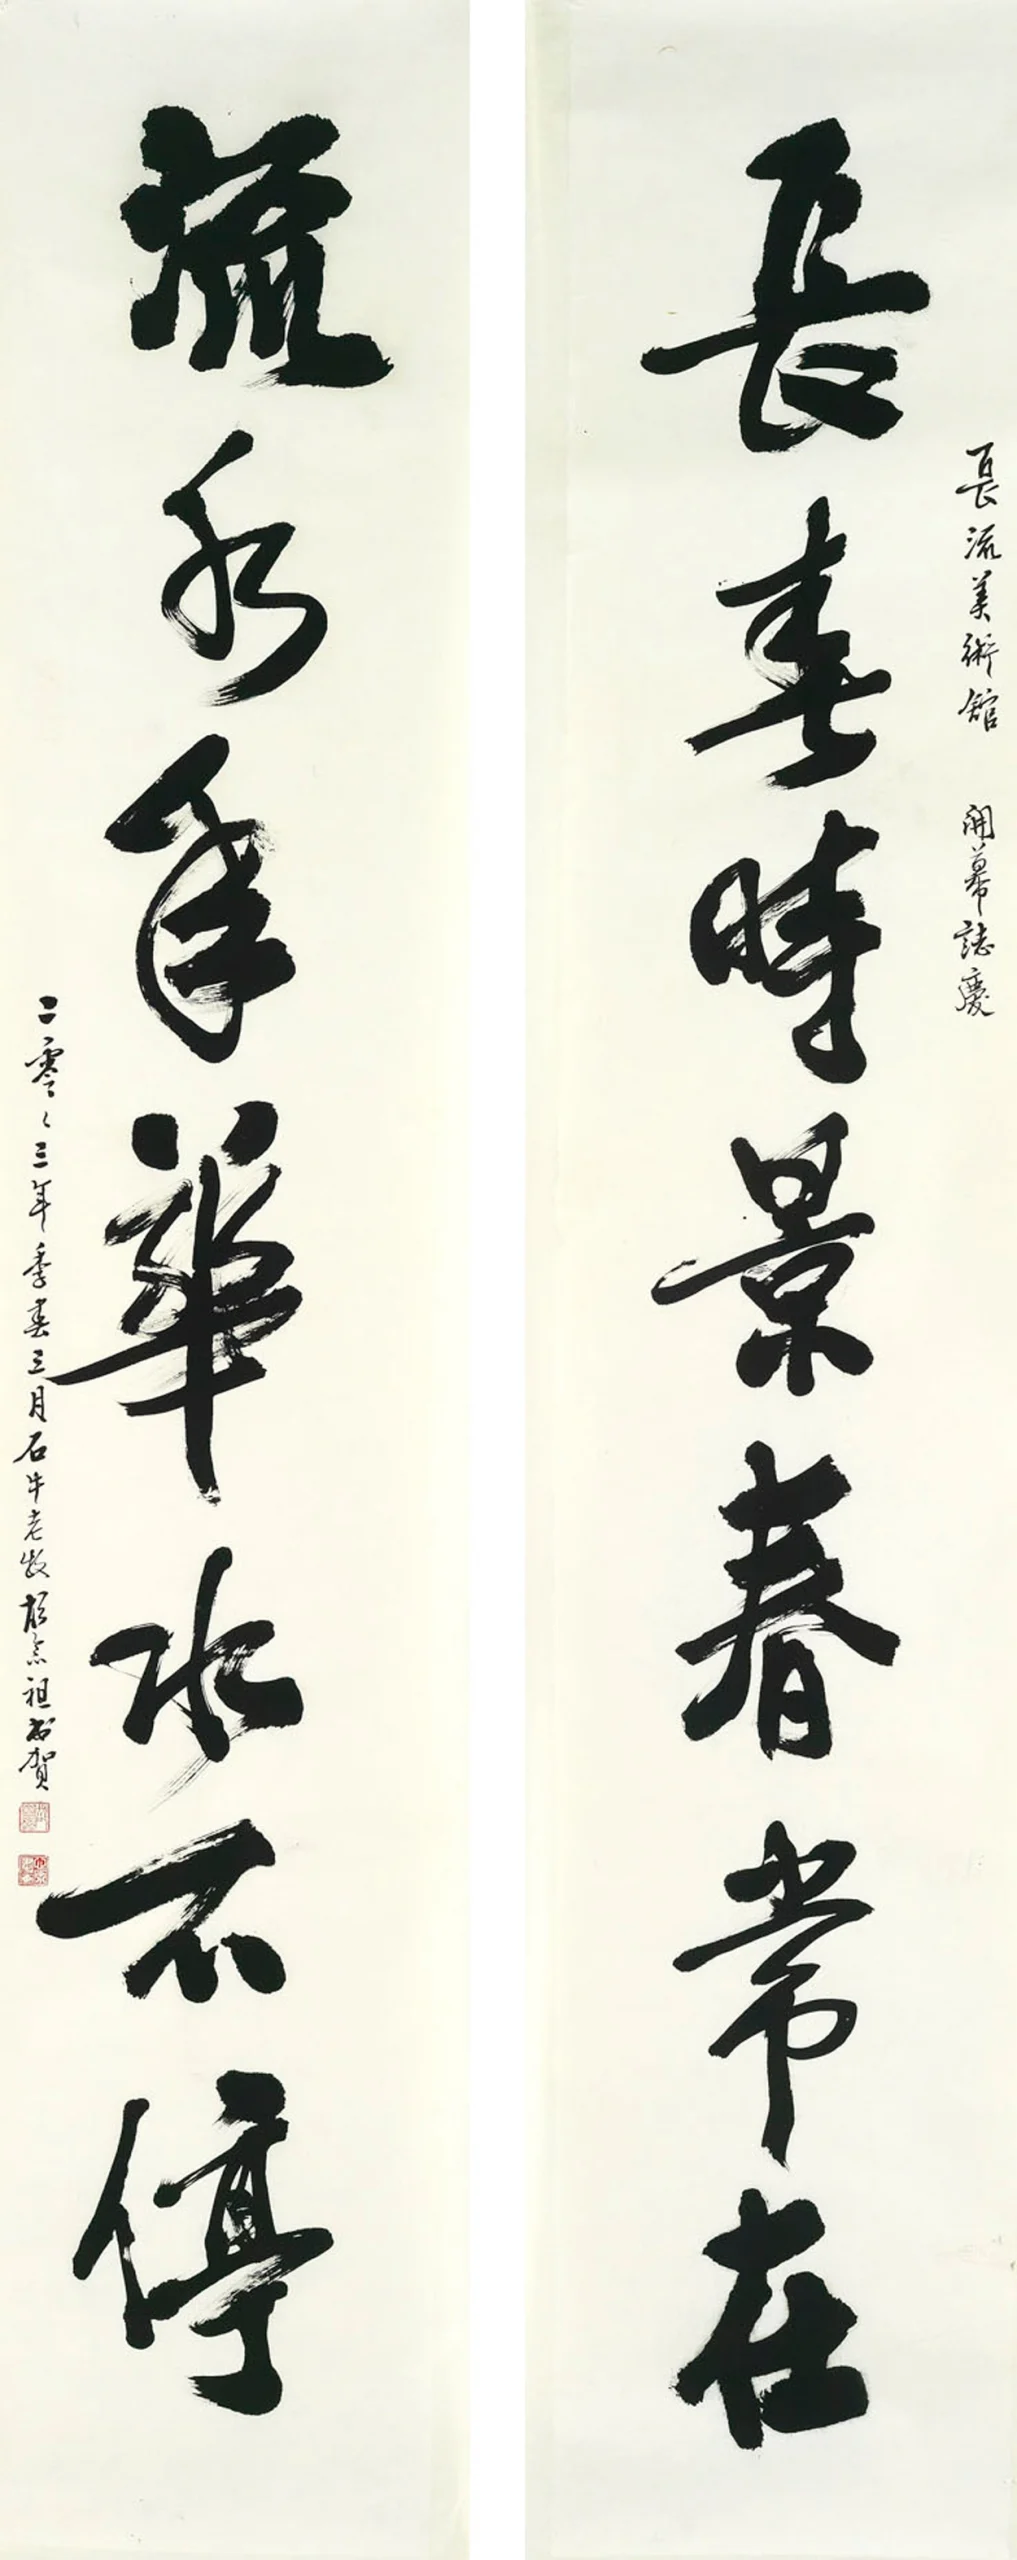 長流美術館 開幕誌慶
長春時景春常在
流水年華水不停
二零々三年季春三月石牛老牧 祖書賀